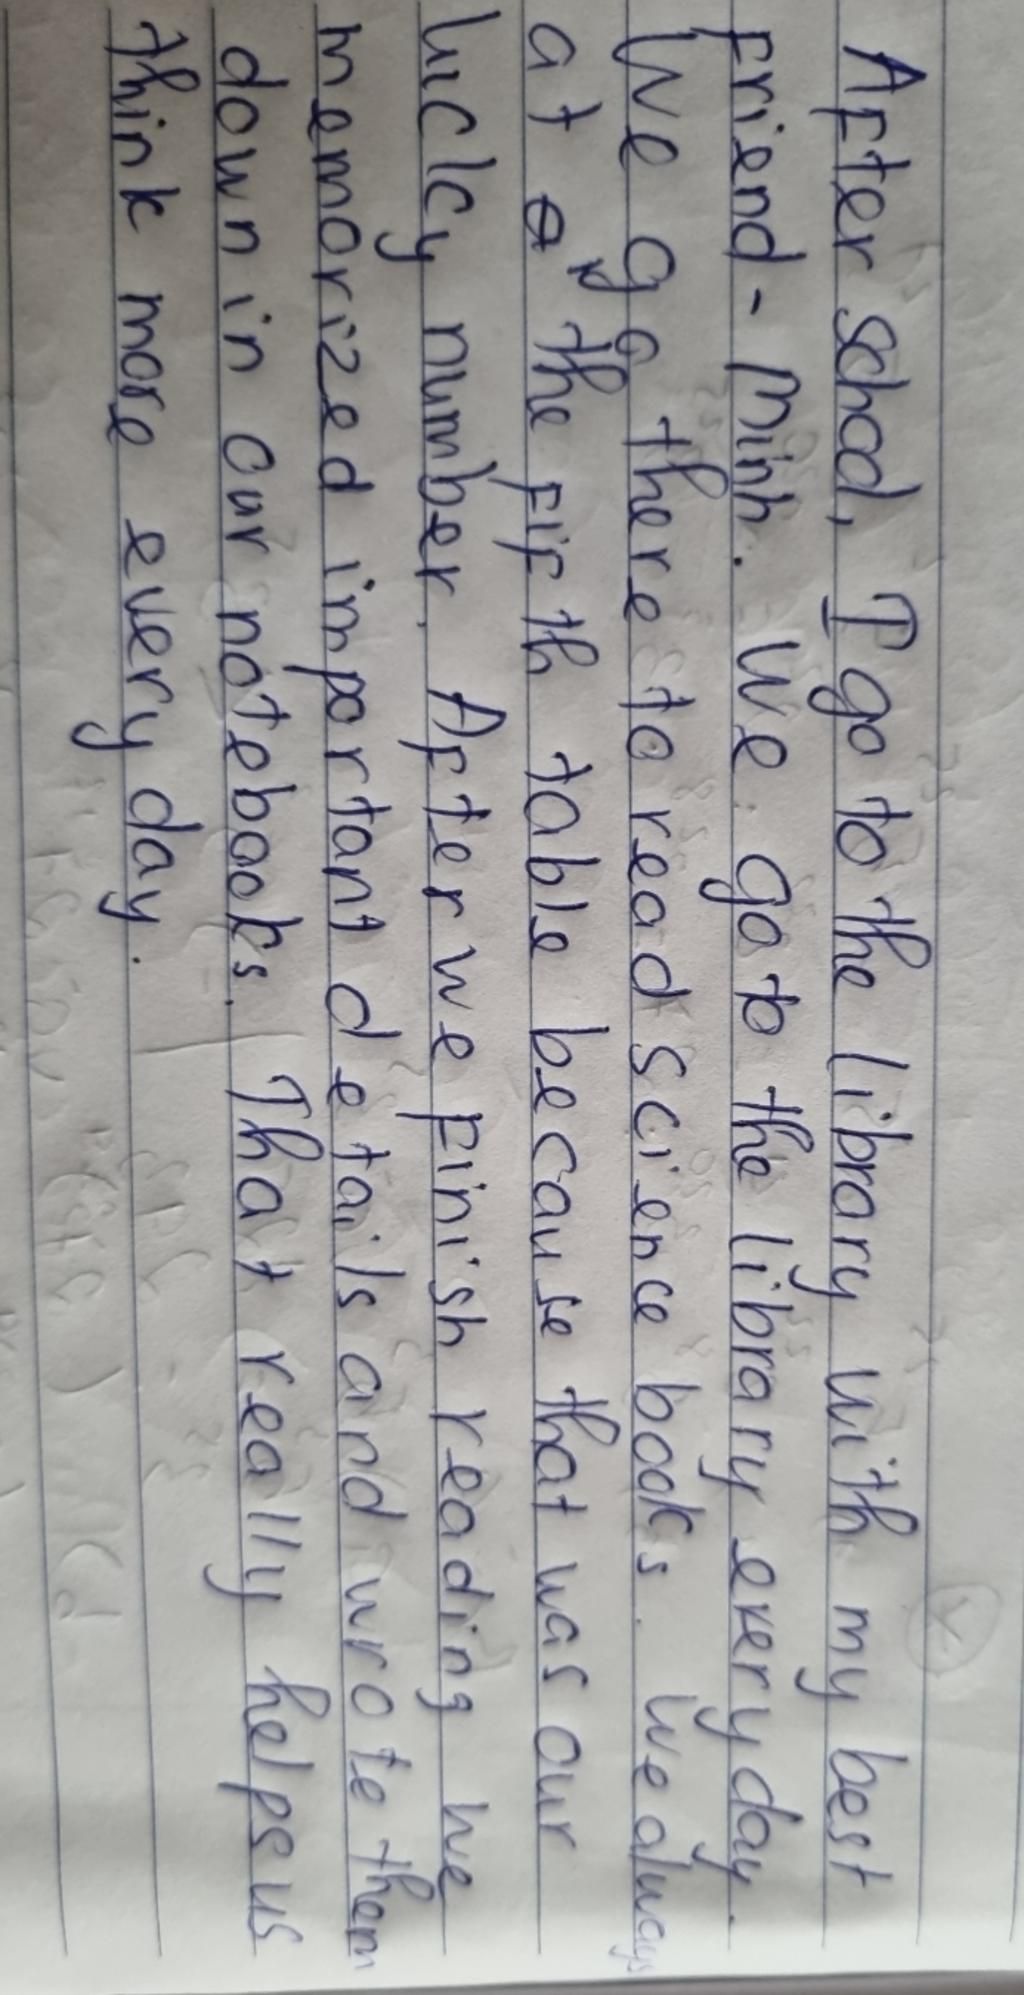 After school, I go to the library with my best
friend - Minh. We go to the library every day.
We go there to read science books. We always
at the fifth table because that was our
lucky number. After we finish reading we
memorized important details and wrote them
down in our notebooks. That really helps us
think more every day.